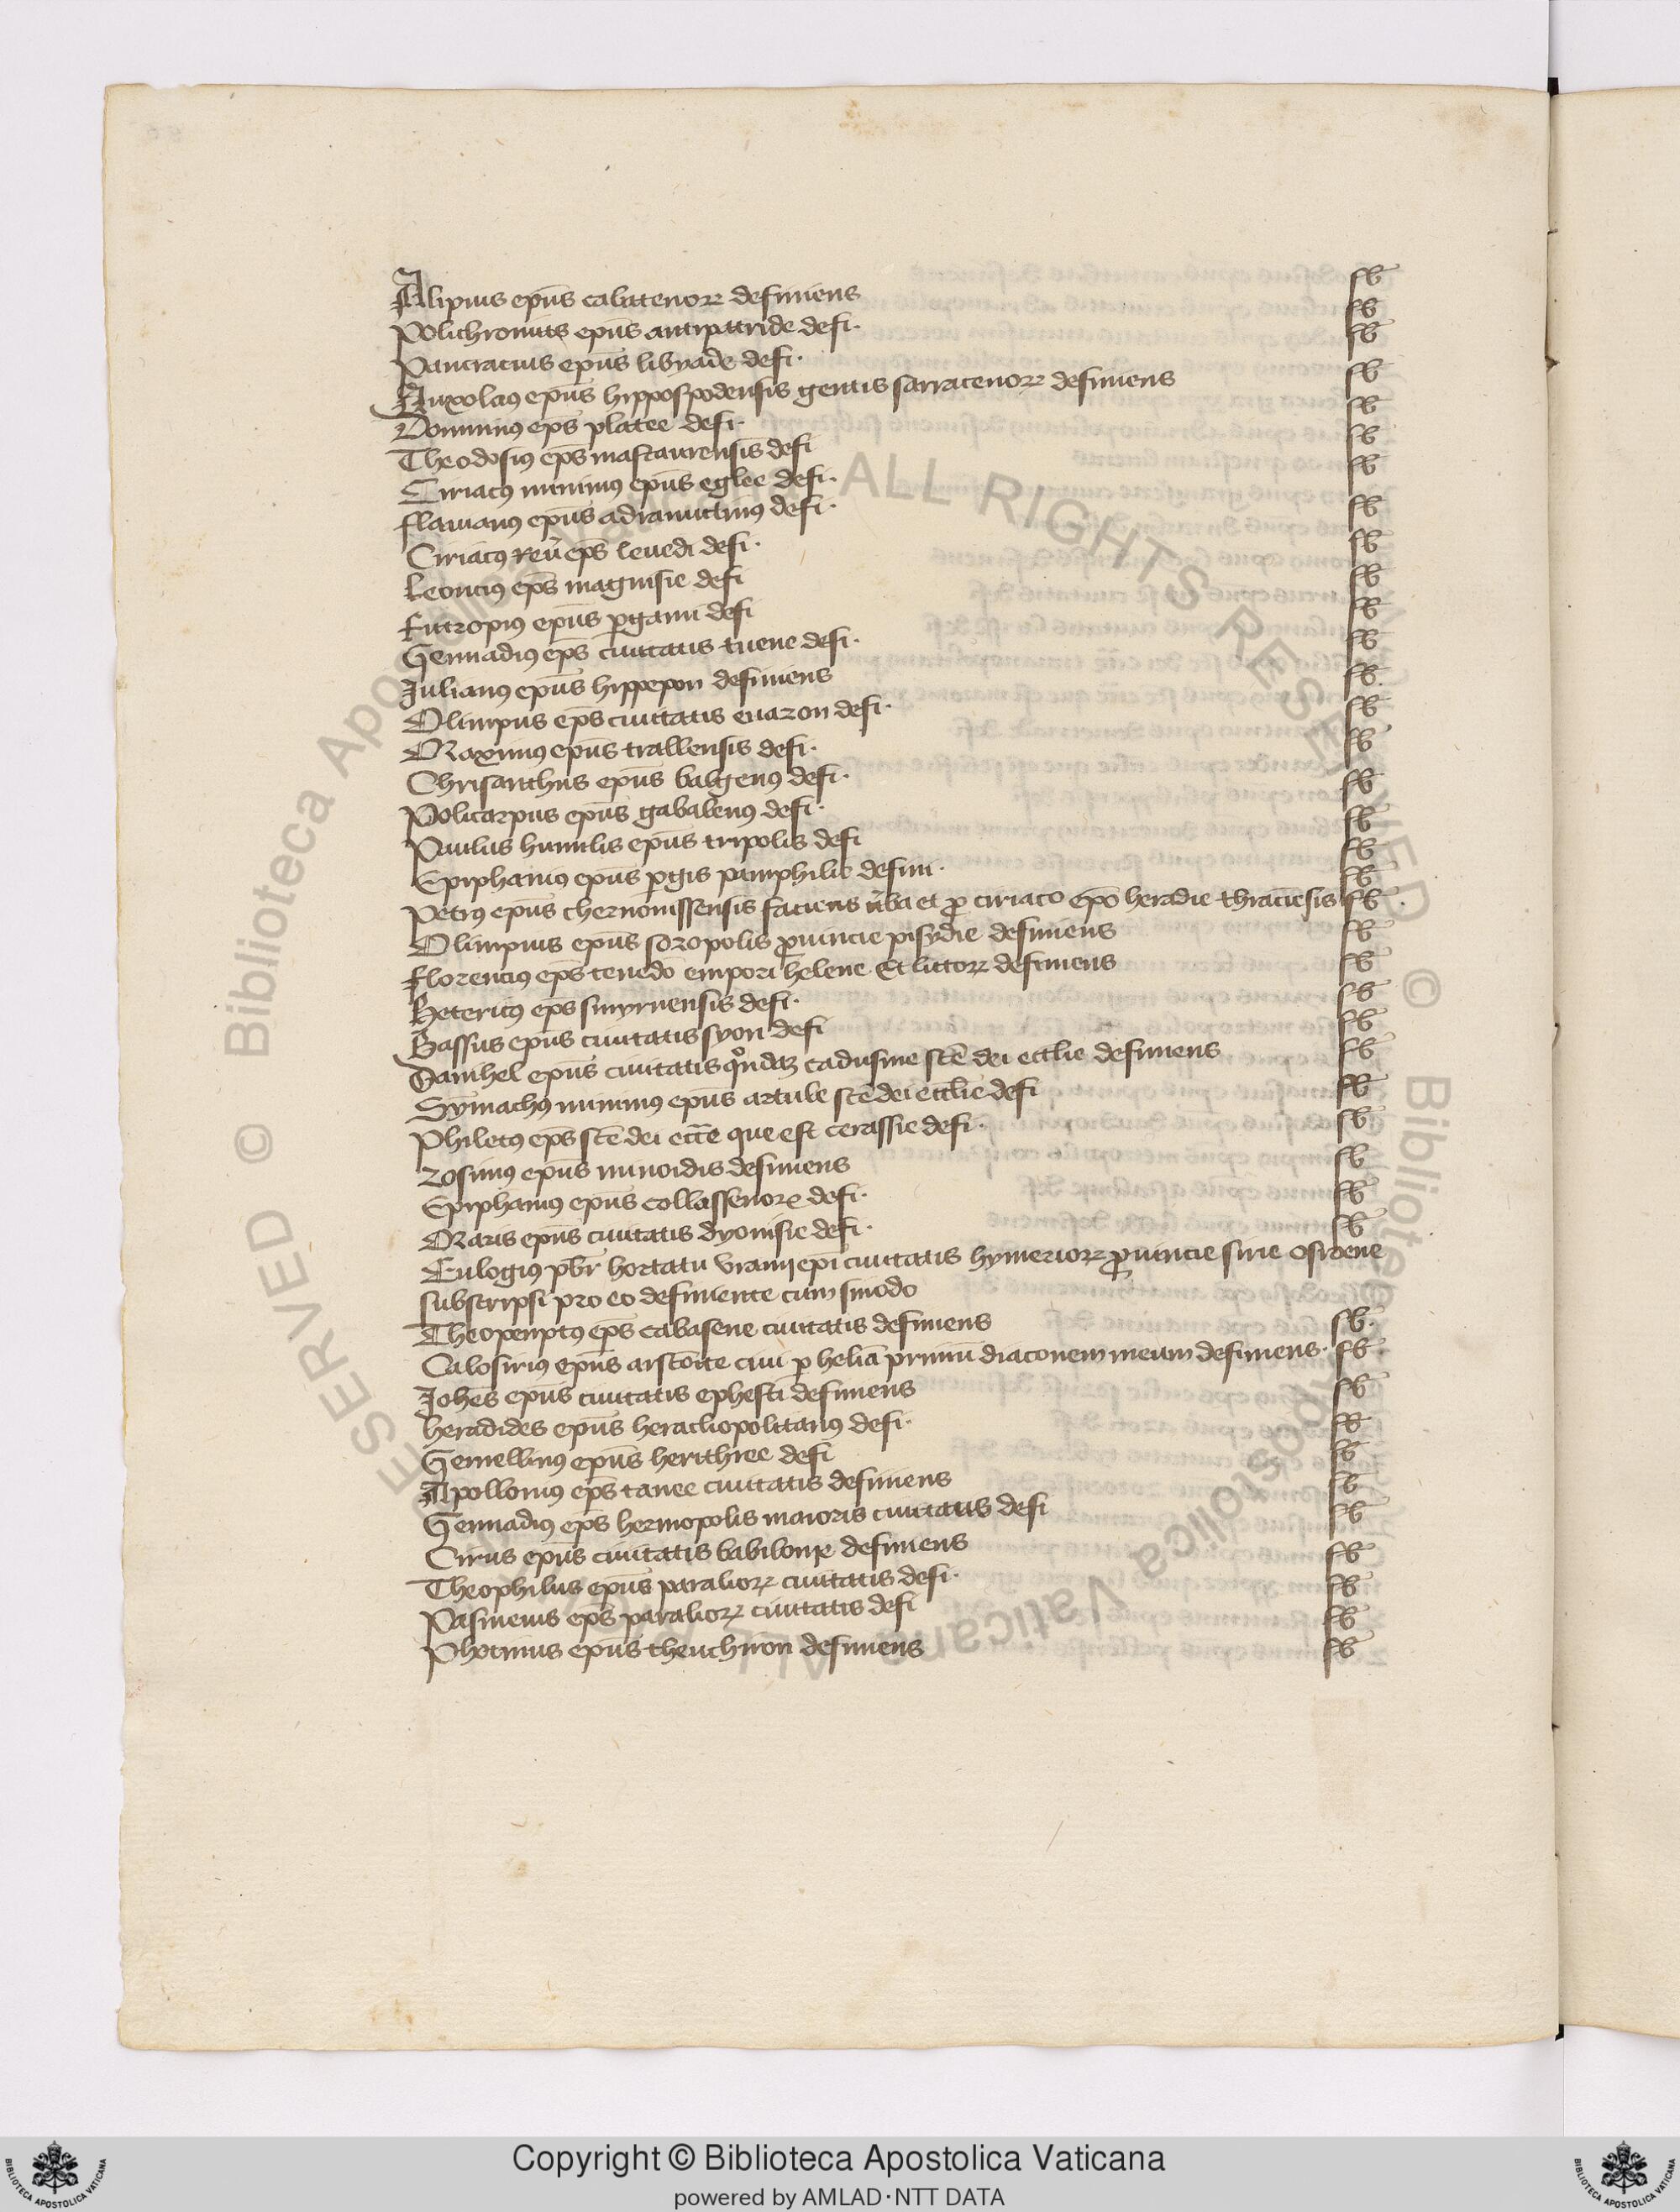 Alipius ep̄us calatenoꝝ definiens sb̄
Polichronius ep̄us antipatride defi· sb̄
Pancracius ep̄us libyade defi· sb̄
Auxolaus ep̄us hippospodensis gentis sarracenoꝝ definiens sb̄
Domninus ep̄s platee defi· sb̄
Theodosius ep̄s mastaurensis defi sb̄
Ciriacus minimus ep̄us eglee defi· sb̄
flauianus ep̄us adramittinus defi· sb̄
Ciriacus ep̄s leuedi defi· sb̄
Leoncius ep̄s magnisie defi sb̄
Eutropius ep̄us ꝑgami defi sb̄
Gennadius ep̄s ciuitatis tuene defi· sb̄
Julianus ep̄us hippepon definiens sb̄
Olimpius ep̄s ciuitatis euazon defi· sb̄
Maximus ep̄us trallensis defi· sb̄
Chrisanthus ep̄us balgenus defi· sb̄
Policarpus ep̄us gabalenus defi· sb̄
Paulus humilis ep̄us tripolis defi sb̄
Epiphanius ep̄us ꝑgis pamphilie defini· sb̄
Petrus ep̄us chernonissensis faciens v̄ba et ꝓ ciriaco ep̄o heraclie thraciēsis sb̄
Olimpius ep̄us sozopolis ꝓuincie pisydie definiens sb̄
Florencius ep̄s tenedo empori helene Et littoꝝ definiens sb̄
Hetericus ep̄s smyrnensis defi· sb̄
Bassus ep̄us ciuitatis syon defi sb̄
Danihel ep̄us ciuitatis quondaꝫ cadusine scē dei ecclie definiens sb̄
Symachus minimus ep̄us artule scē dei ecclie defi sb̄
Philetus ep̄s scē dei eccl̄e que est cerassie defi· sb̄
zosimus ep̄us minoidis definiens sb̄
Epiphanius ep̄us collassenoꝝ defi· sb̄
Maris ep̄us ciuitatis dyonisie defi· sb̄
Eulogius p̄br hortatu vranij ep̄i ciuitatis hymerioꝝ ꝓuincie sirie osroene
subscripsi pro eo definiente cum sinodo
Theopenptus ep̄s cabasene ciuitatis definiens sb̄·
Calosirius ep̄us arsenoite ciui ꝑ heliā primū diaconem meum definiens· sb̄·
Joh̄es ep̄us ciuitatis ephesti definiens sb̄
heraclides ep̄us heracliopolitanus defi· sb̄
Gemellinus ep̄us herithree defi sb̄
Apollonius ep̄s tanee ciuitatis definiens sb̄
Gennadius ep̄s hermopolis maioris ciuitatis defi sb̄
Cirus ep̄us ciuitatis babilonie definiens sb̄
Theophilus ep̄us paralioꝝ ciuitatis defi· sb̄
Pasmeius ep̄s paralioꝝ ciuitatis defi sb̄
Photinus ep̄us theuchiron definiens sb̄
© Biblioteca Apostolica Vaticana ALL RIGHTS RESERVED
Copyright © Biblioteca Apostolica Vaticana
powered by AMLAD·NTT DATA
BIBLIOTECA APOSTOLICA VATICANA
BIBLIOTECA APOSTOLICA VATICANA